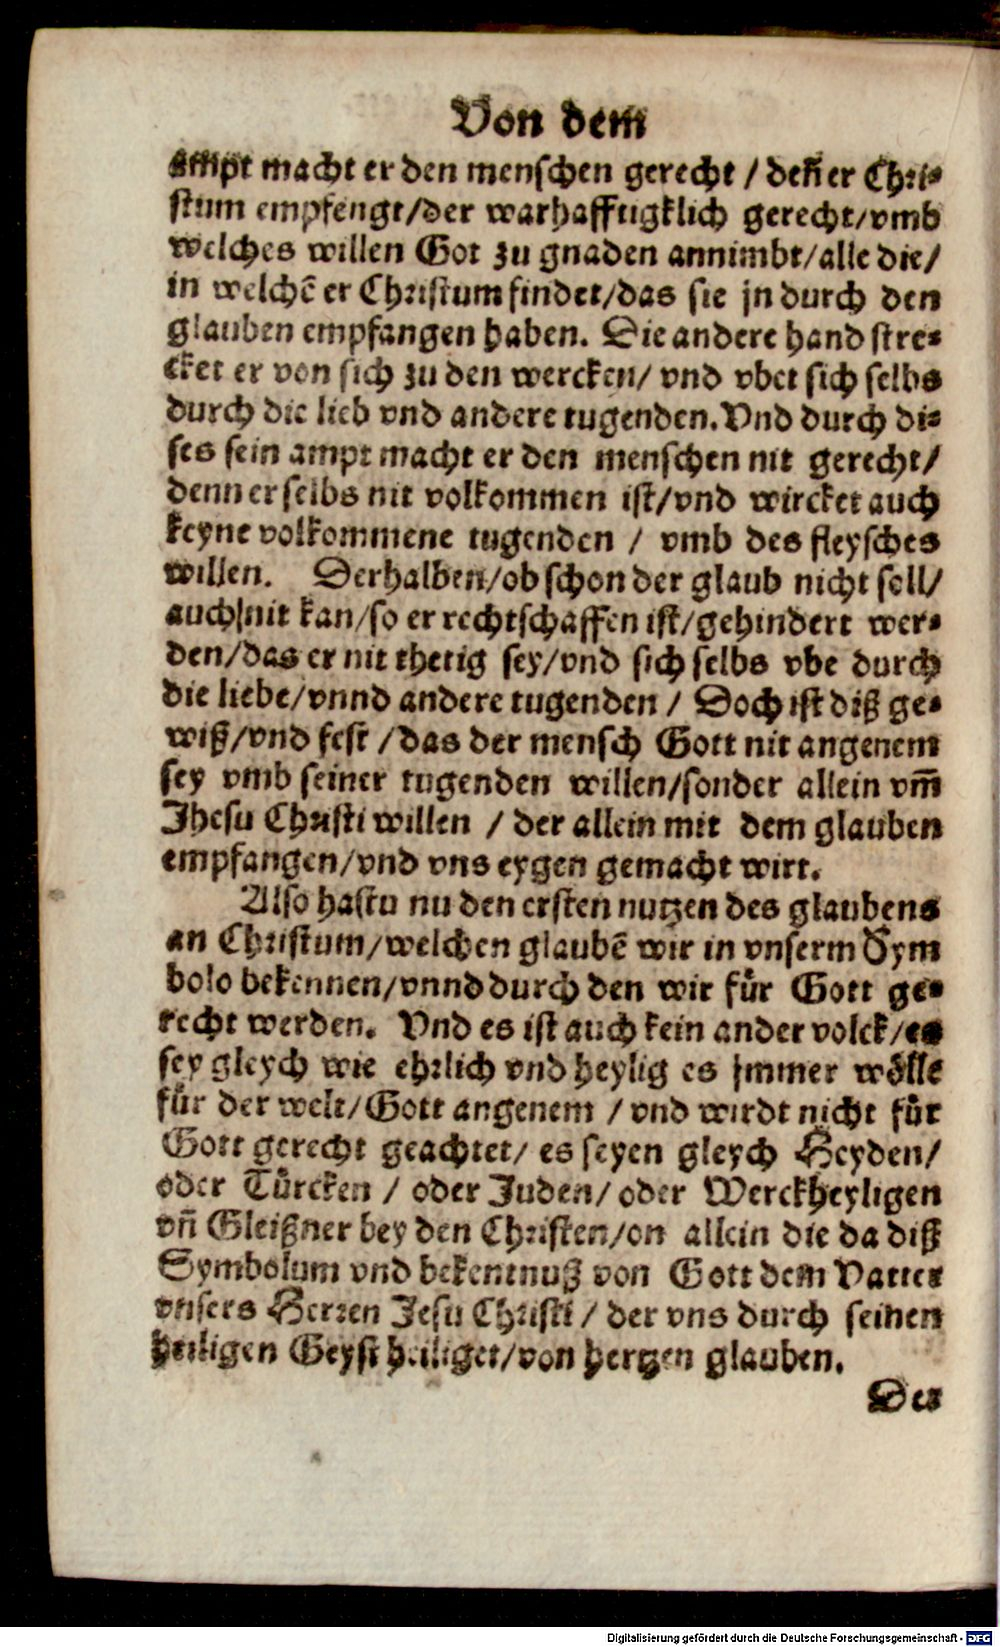 Von dem
ampt macht er den menschen gerecht / deñ er Chri⸗
stum empfengt/der warhafftigklich gerecht/vmb
welches willen Got zu gnaden annimbt/alle die/
in welchẽ er Christum findet/das sie jn durch den
glauben empfangen haben. Die andere hand stre⸗
cket er von sich zu den wercken/ vnd vbet sich selbs
durch die lieb vnd andere tugenden. Vnd durch di⸗
ses sein ampt macht er den menschen nit gerecht/
denn er selbs nit volkommen ist/vnd wircket auch
keyne volkommene tugenden / vmb des fleysches
willen. Derhalben/ob schon der glaub nicht soll/
auch nit kan/so er rechtschaffen ist/gehindert wer⸗
den/das er nit thetig sey/vnd sich selbs vbe durch
die liebe/vnnd andere tugenden / Doch ist diß ge⸗
wiß/vnd fest /das der mensch Gott nit angenem
sey vmb seiner tugenden willen/sonder allein vm̃
Jhesu Christi willen / der allein mit dem glauben
empfangen/vnd vns eygen gemacht wirt.
Also hastu nu den ersten nutzen des glaubens
an Christum/welchen glaubẽ wir in vnserm Sym
bolo bekennen/vnnd durch den wir fuͤr Gott ge⸗
recht werden. Vnd es ist auch kein ander volck/es
sey gleych wie ehrlich vnd heylig es jmmer woͤlle
fuͤr der welt/Gott angenem / vnd wirdt nicht fuͤr
Gott gerecht geachtet/ es seyen gleych Heyden/
oder Tuͤrcken / oder Juden/ oder Werckheyligen
vñ Gleißner bey den Christen/on allein die da diß
Symbolum vnd bekentnuß von Gott dem Vatter
vnsers Herren Jesu Christi / der vns durch seinen
heiligen Geyst heiliget/von hertzen glauben.
Der
Digitalisierung gefördert durch die Deutsche Forschungsgemeinschaft - DFG